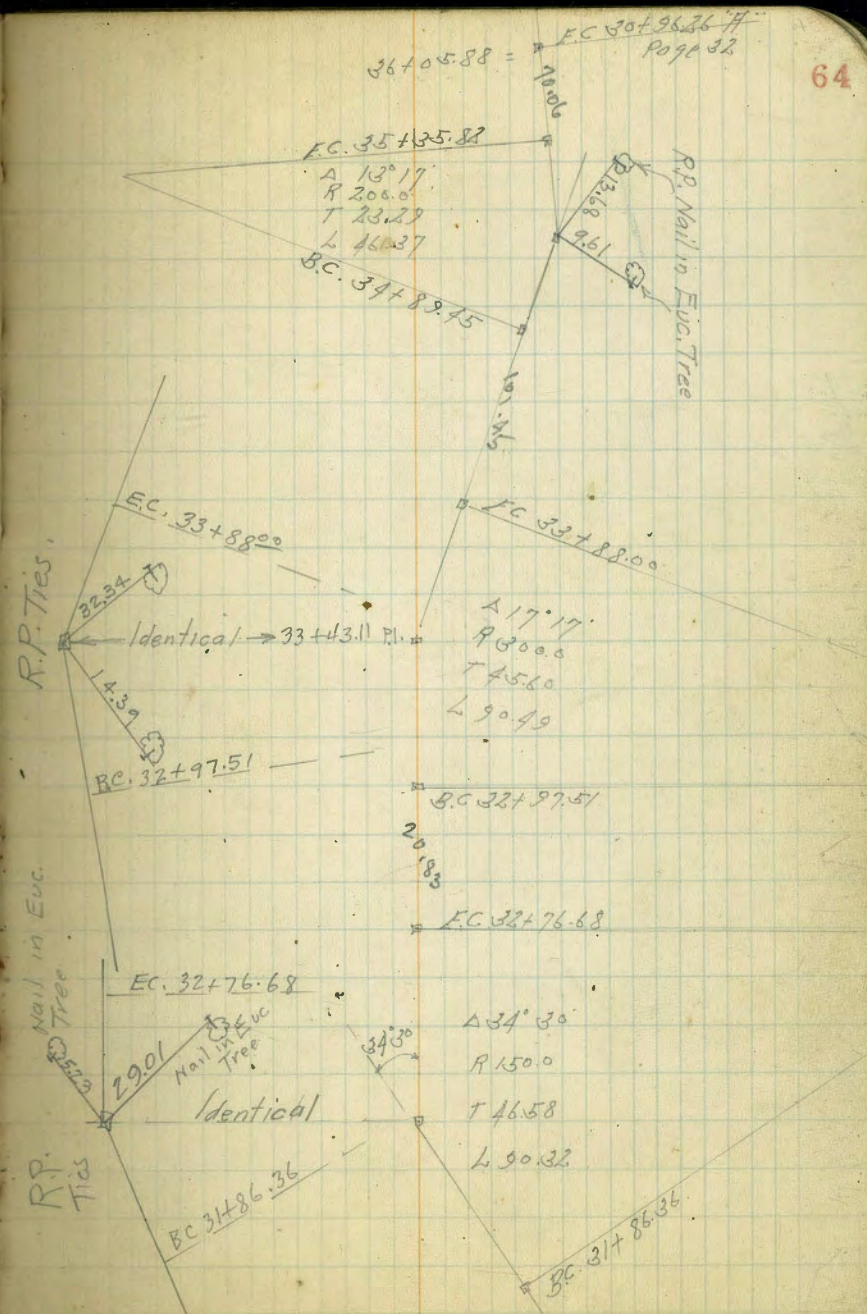 64
E.C 30+96.26 "A"
Page 32
36+05.88 =
70.06
E.C. 35+35.82
Δ 13°17'
R 200.0
T 23.29
L 46.37
B.C. 34+89.45
13.68
9.61
R.P. Nail in Euc. Tree
101.45
E.C. 33+88.00
E.C. 33+88.00
R.P. Ties.
32.34
Identical → 33+43.11 P.I.
14.39
Δ 17°17'
R 300.0
T 45.60
L 90.49
B.C. 32+97.51
B.C 32+97.51
20.83
E.C 32+76.68
EC. 32+76.68
Nail in Euc.
Tree
29.01
Nail in Euc
Tree
34°30
Δ 34°30'
R 150.0
T 46.58
L 90.32
Identical
R.P.
Ties
BC 31+86.36
B.C. 31+86.36